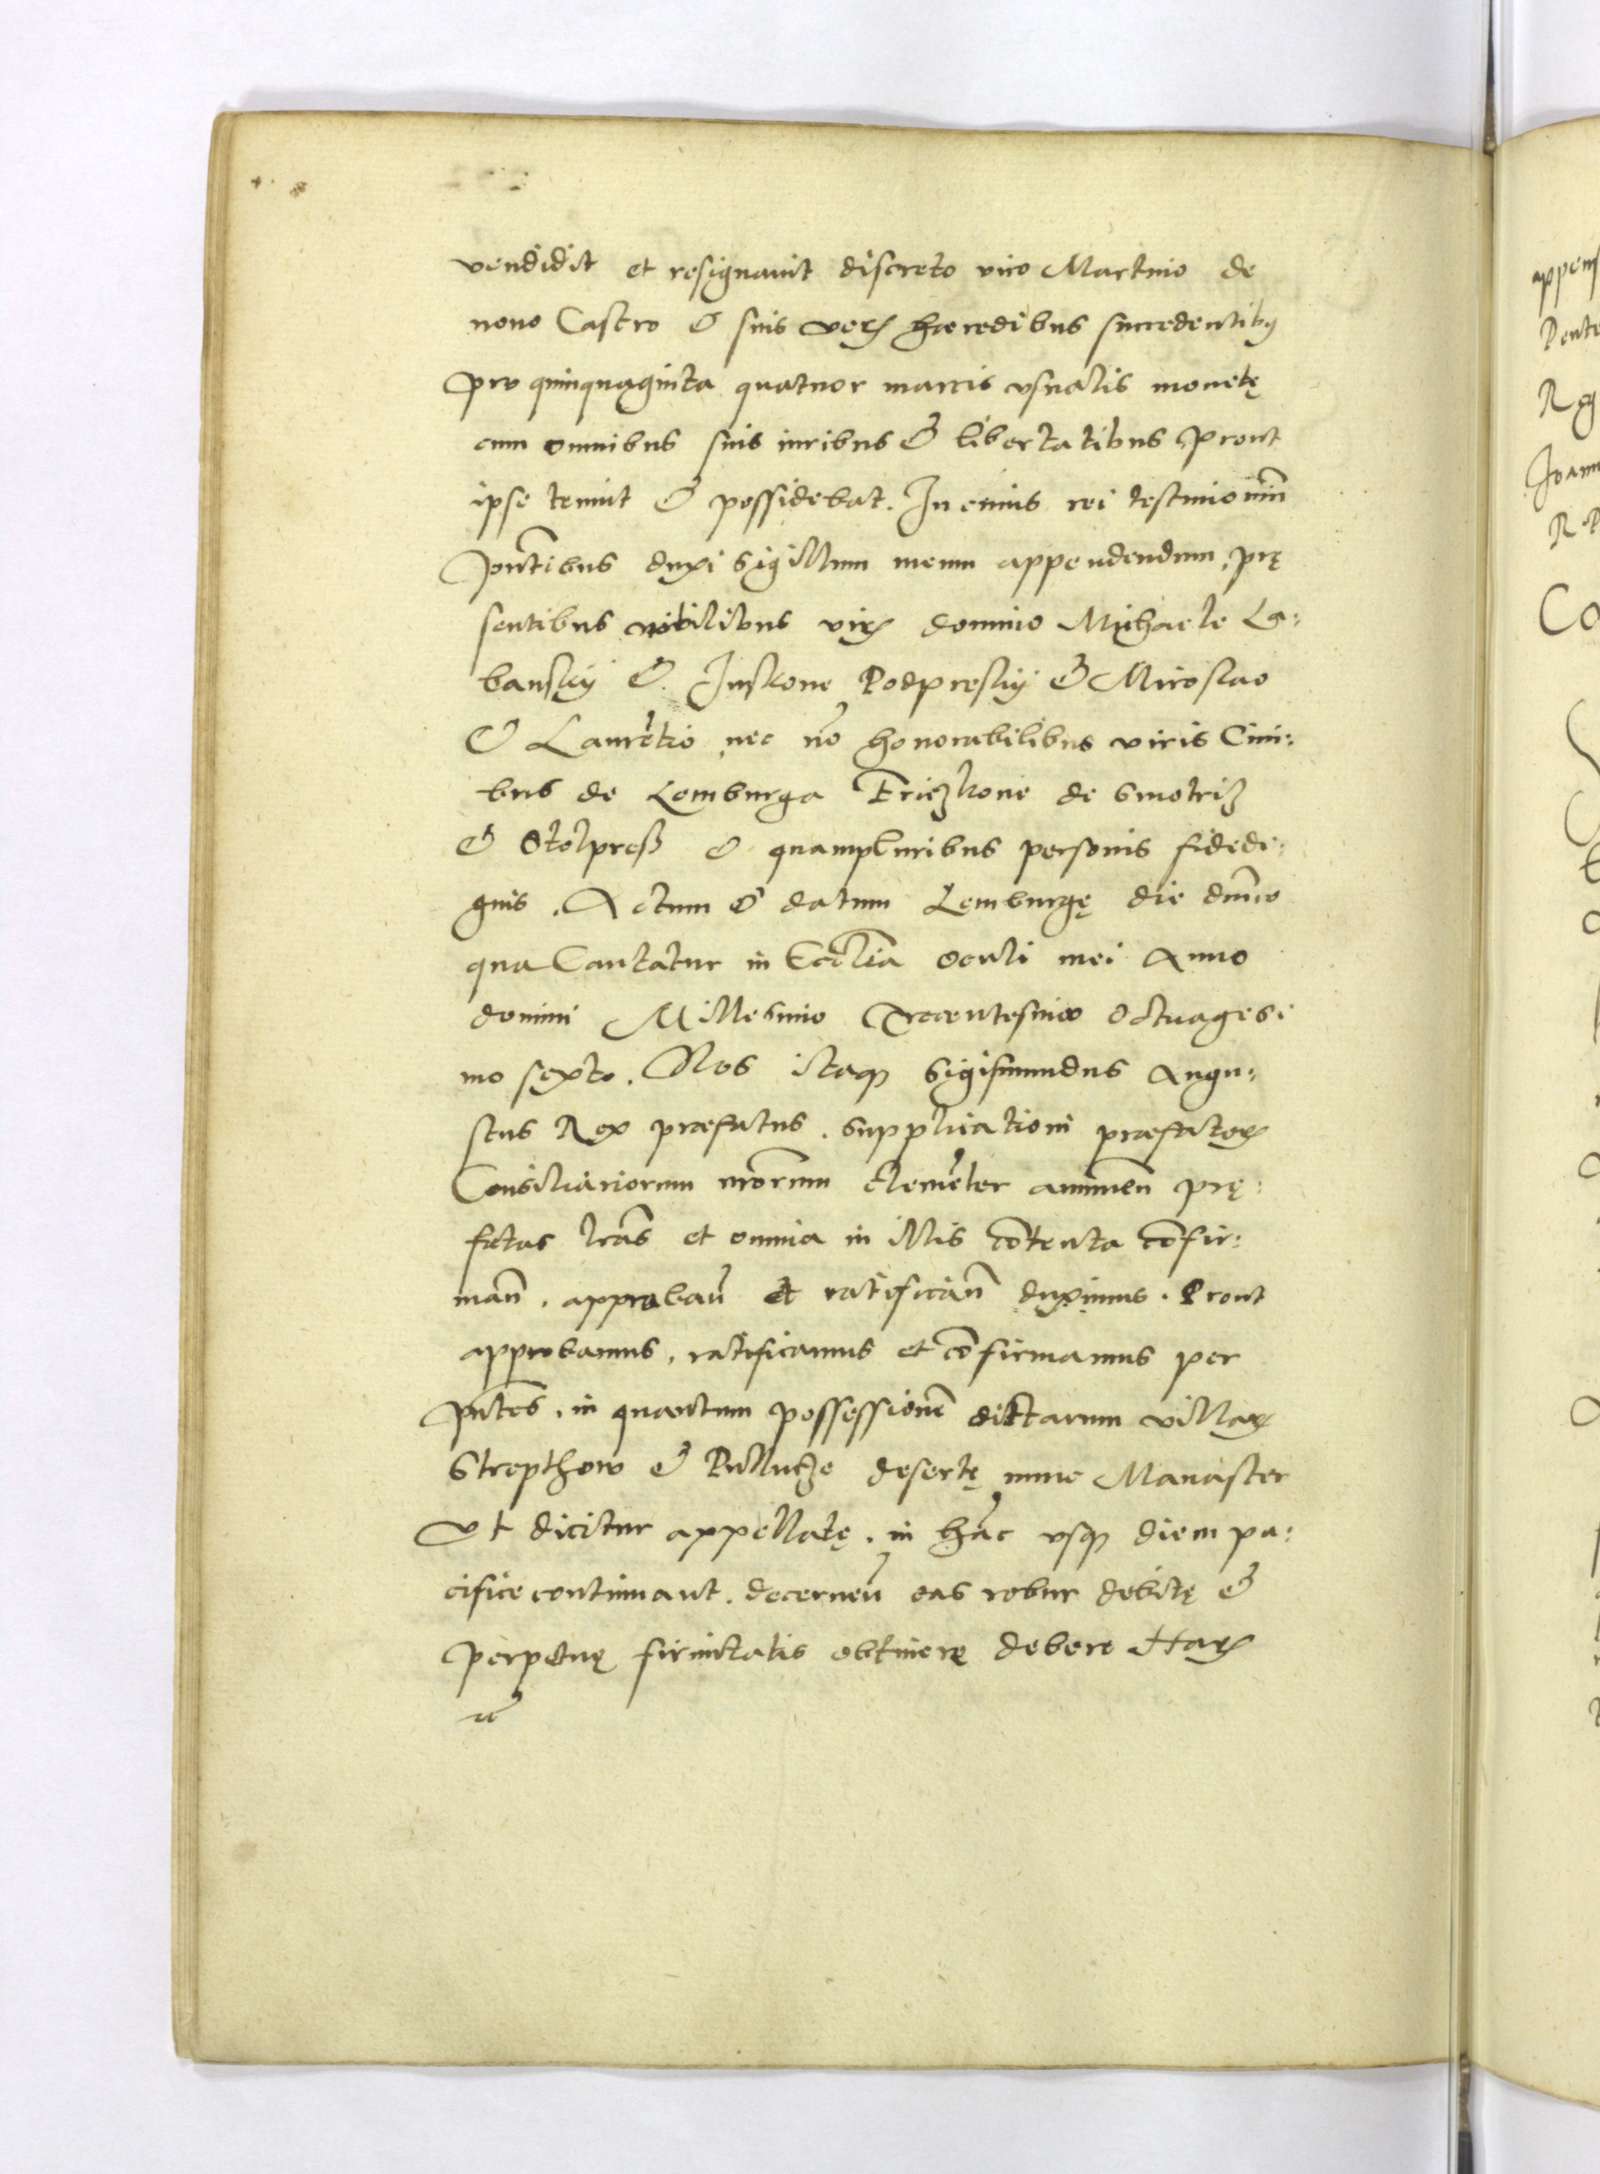 vendidit et resignauit discreto viro Martino de
nouo Castro & suis veris hæredibus succedentibus
pro quinquaginta quatuor marcis vsualis monetę
cum omnibus suis iuribus & libertatibus prout
ipse tenuit & possidebat. In cuius rei testimoniũ
pñtibus duxi sigillum meum appendendum, prę
sentibus nobilibus viris domino Michaele La:
banskij & Juskone Podpreskij & Miroslao
& Laurẽtio nec nõ honorabilibus viris Ciui:
bus de Lemburga Friezkone de Smotriz
& Stolpreß & quampluribus personis fidedi:
gnis. Actum & datum Lemburgę die dñico
qua Cantatur in Ecclĩa oculi mei Anno
domini Millesimo Trecentesimo Octuagesi
mo sexto. Nos itaque Sigismundus Augu:
stus Rex præfatus. supplicationi præfatorum
Consiliariorum nrõrum clemẽter annuen̄ prę:
fatas lrãs et omnia in illis cõtenta cõfir:
man̄. approban̄ et ratifican̄ duximus. Prout
approbamus, ratificamus et cõfirmamus per
pñtes. in quantum possessionẽ dictarum villarum
Strepthow & Pulluche desertę nunc Manaster
Vt dicitur appellatę. in hãc vsque diem pa:
cifice continuant. decernen̄ eas robur debitę &
perpetuę firmitatis obtinere debere Harum